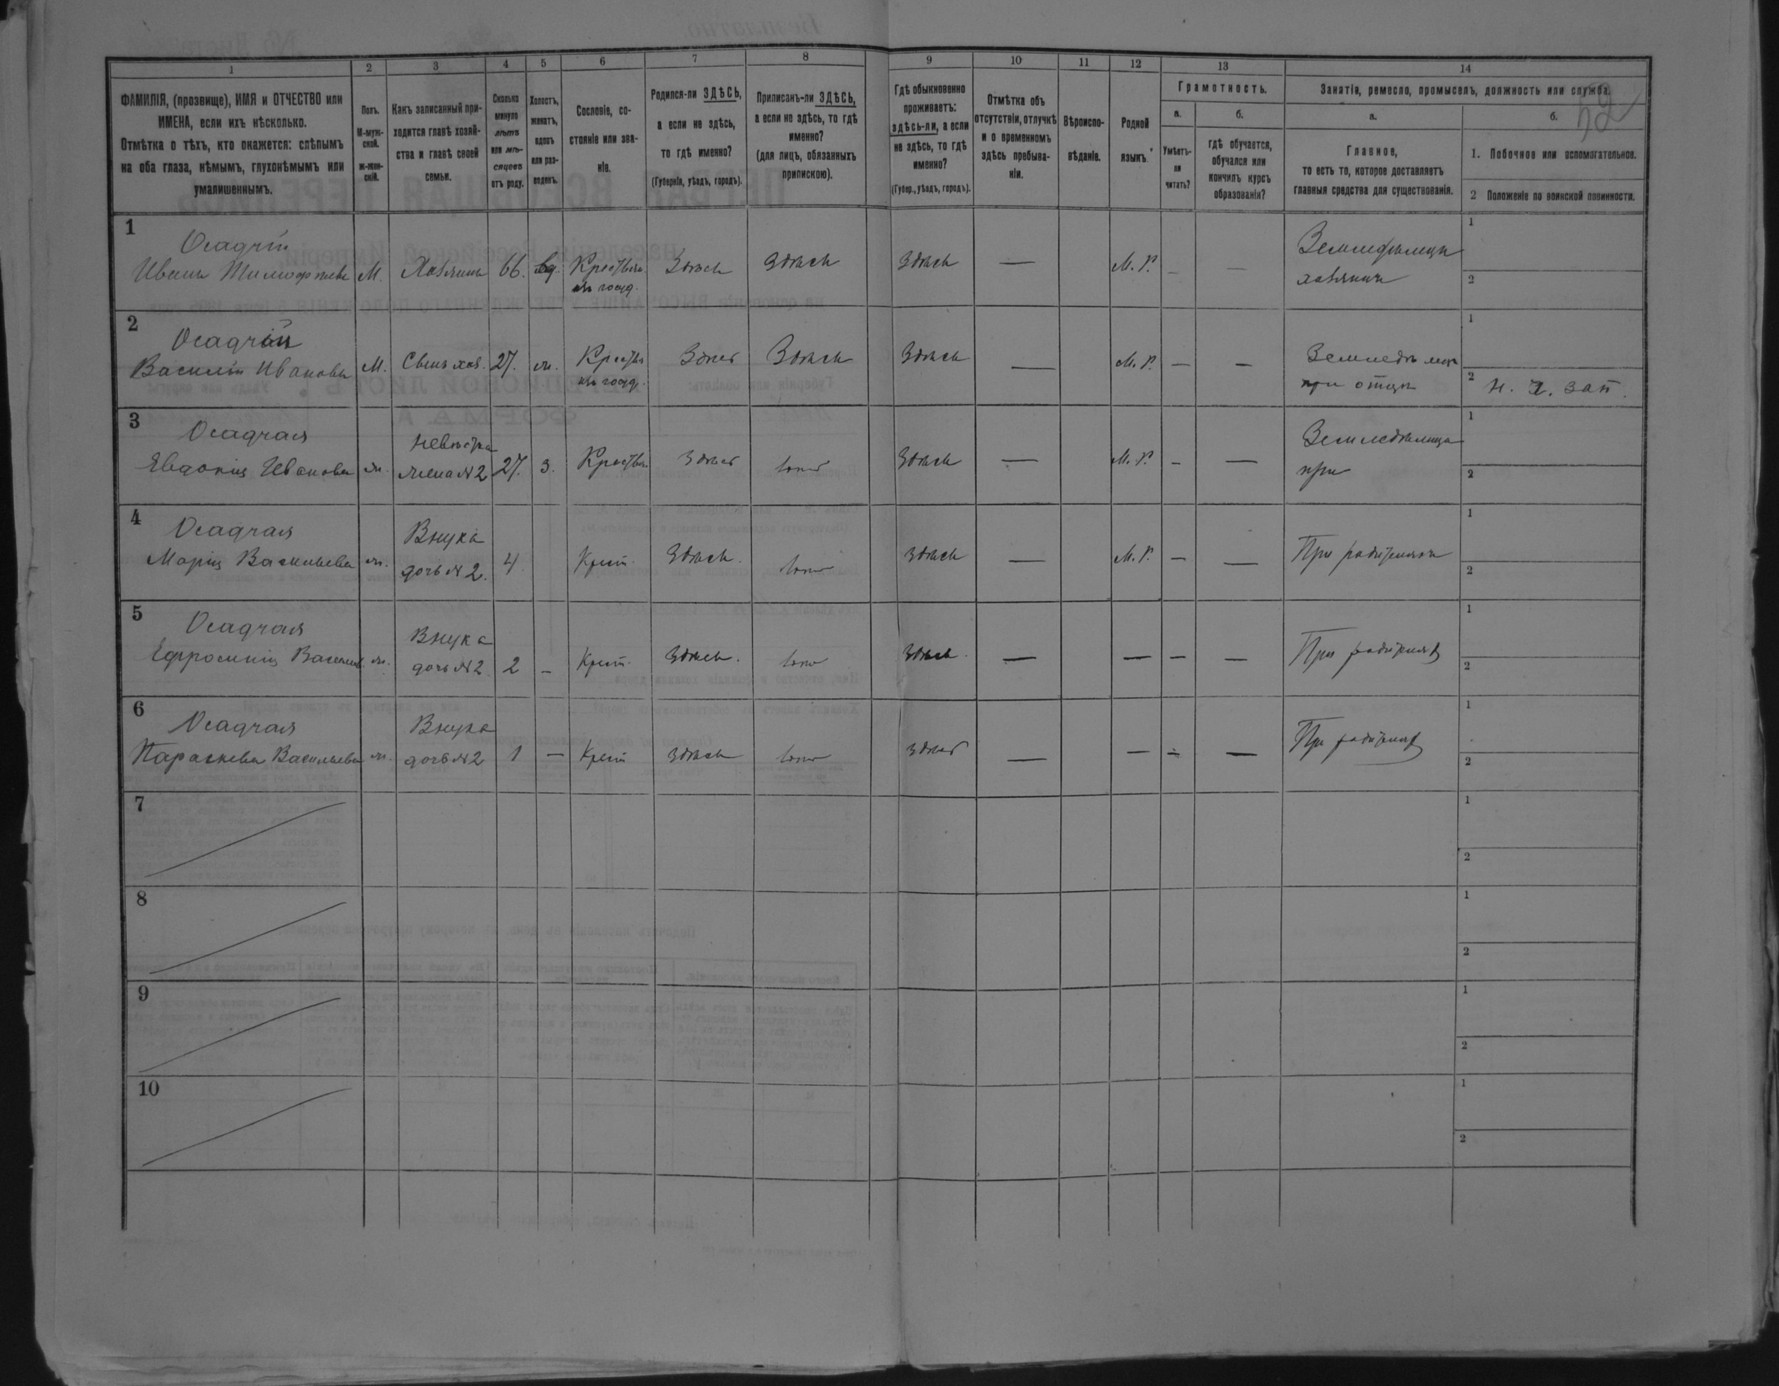 52
1 2 3 4 5 6 7 8 9 10 11 12 13 14
ФАМИЛІЯ, (прозвище), ИМЯ и ОТЧЕСТВО или
ИМЕНА, если ихъ нѣсколько.
Отмѣтка о тѣхъ, кто окажется: слѣпымъ
на оба глаза, нѣмымъ, глухонѣмымъ или
умалишеннымъ.
Полъ.
М-муж-
ской.
ж-жен-
скій.
Какъ записанный при-
ходится главѣ хозяй-
ства и главѣ своей
семьи.
Сколько
минуло
лѣтъ
или мѣ-
сяцевъ
отъ роду.
Холостъ,
женатъ,
вдовъ
или раз-
веденъ.
Сословіе, со-
стояніе или зва-
ніе.
Родился-ли ЗДѢСЬ,
а если не здѣсь,
то гдѣ именно?
(Губернія, уѣздъ, городъ).
Приписанъ-ли ЗДѢСЬ,
а если не здѣсь, то гдѣ
именно?
(для лицъ, обязанныхъ
припискою).
Гдѣ обыкновенно
проживаетъ:
здѣсь-ли, а если
не здѣсь, то гдѣ
именно?
(Губер., уѣздъ, городъ).
Отмѣтка объ
отсутствіи, отлучкѣ
и о временномъ
здѣсь пребыва-
ніи.
Вѣроиспо-
вѣданіе.
Родной
языкъ.
Грамотность.
а.
Умѣетъ-
ли
читать?
б.
гдѣ обучается,
обучался или
кончилъ курсъ
образованія?
Занятіе, ремесло, промыселъ, должность или служба.
а.
Главное,
то есть то, которое доставляетъ
главныя средства для существованія.
б.
1. Побочное или вспомогательное.
2 Положеніе по воинской повинности.
1
Осадчій
Иванъ Тимофеевъ М. Хозяинъ 66. вд. Крестьян. Здѣсь Здѣсь Здѣсь — М. Р. — —
изъ госуд.
Земледѣлецъ
хозяинъ
1
2
2
Осадчій
Василій Ивановъ М. Сынъ хоз. 27. ж. Крестьян. Здѣсь Здѣсь Здѣсь — М. Р. — —
изъ госуд.
при отцѣ
1
2 н. ч. зап.
3
Осадчая
Евдокія Иванова ж. Невѣстка 27. з. Крестьян. Здѣсь Здѣсь — М. Р. — —
жена №2
Земледѣлица
при
1
2
4
Осадчая
Марія Васильева ж. Внука 4 Крест. Здѣсь. Здѣсь — М. Р. — —
дочь №2.
При родителяхъ
1
2
5
Осадчая
Ефросинія Васильев. ж. Внука 2 — Крест. Здѣсь. Здѣсь — — — —
дочь №2.
При родителях
1
2
6
Осадчая
Параскева Васильева ж. Внука 1 — Крест Здѣсь Здѣсь — — — —
дочь №2
При родителях
1
2
7
1
2
8
1
2
9
1
2
10
1
2